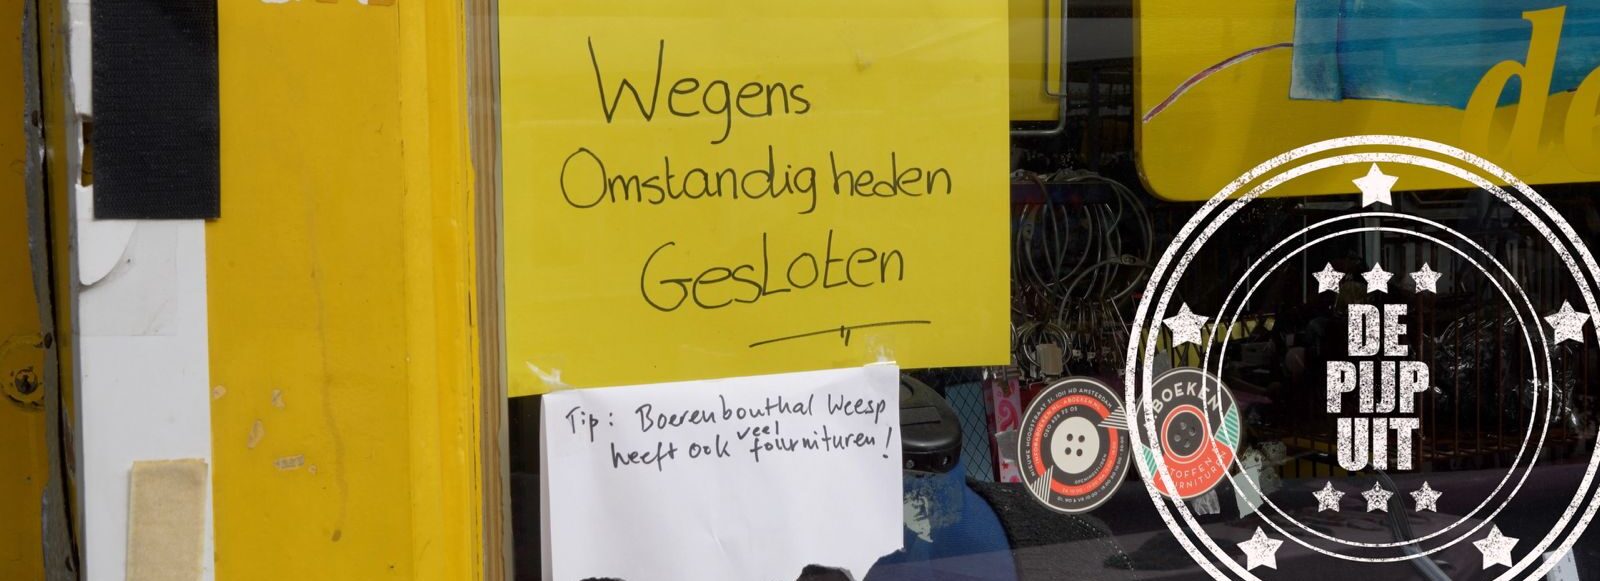 Wegens
Omstandigheden
Gesloten
Tip: Boerenbouthal Weesp
heeft ook veel fournituren!
de
BOEKEN
STOFFEN &
FOURNITUREN
DE
PIJP
UIT